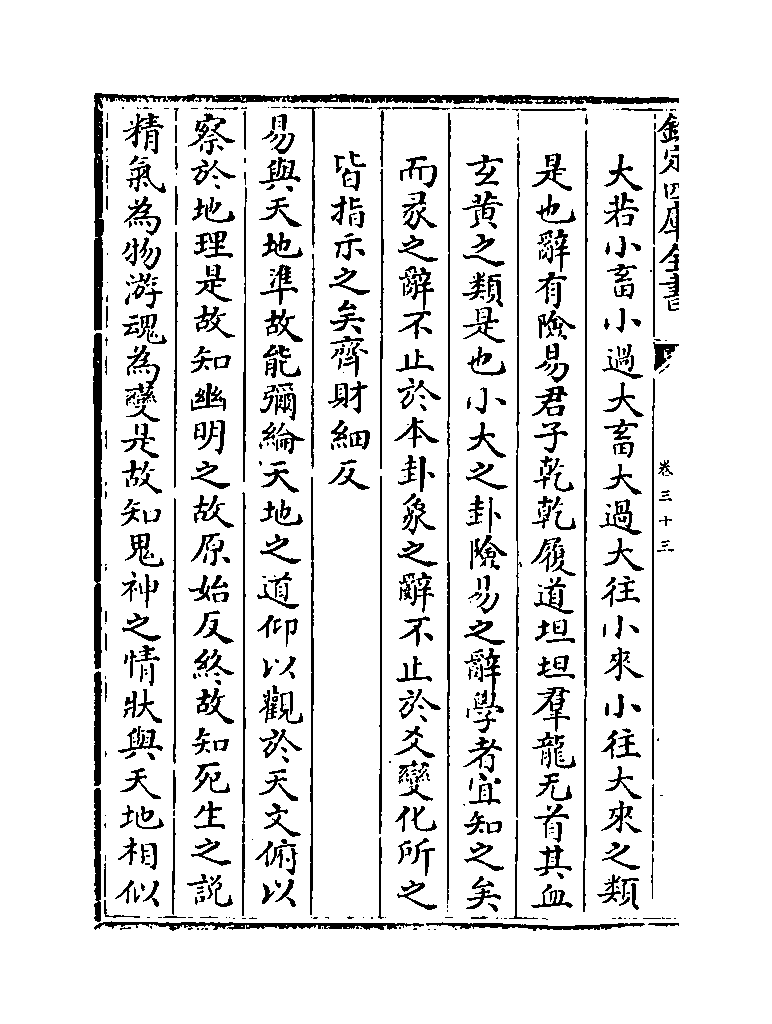 欽定四庫全書
卷三十三
大若小畜小過大畜大過大往小來小往大來之類
是也辭有險易君子乾乾履道坦坦羣龍无首其血
玄黃之類是也小大之卦險易之辭學者宜知之矣
而彖之辭不止於本卦象之辭不止於爻變化所之
皆指示之矣齊財細反
易與天地準故能彌綸天地之道仰以觀於天文俯以
察於地理是故知幽明之故原始反終故知死生之說
精氣為物游魂為變是故知鬼神之情狀與天地相似